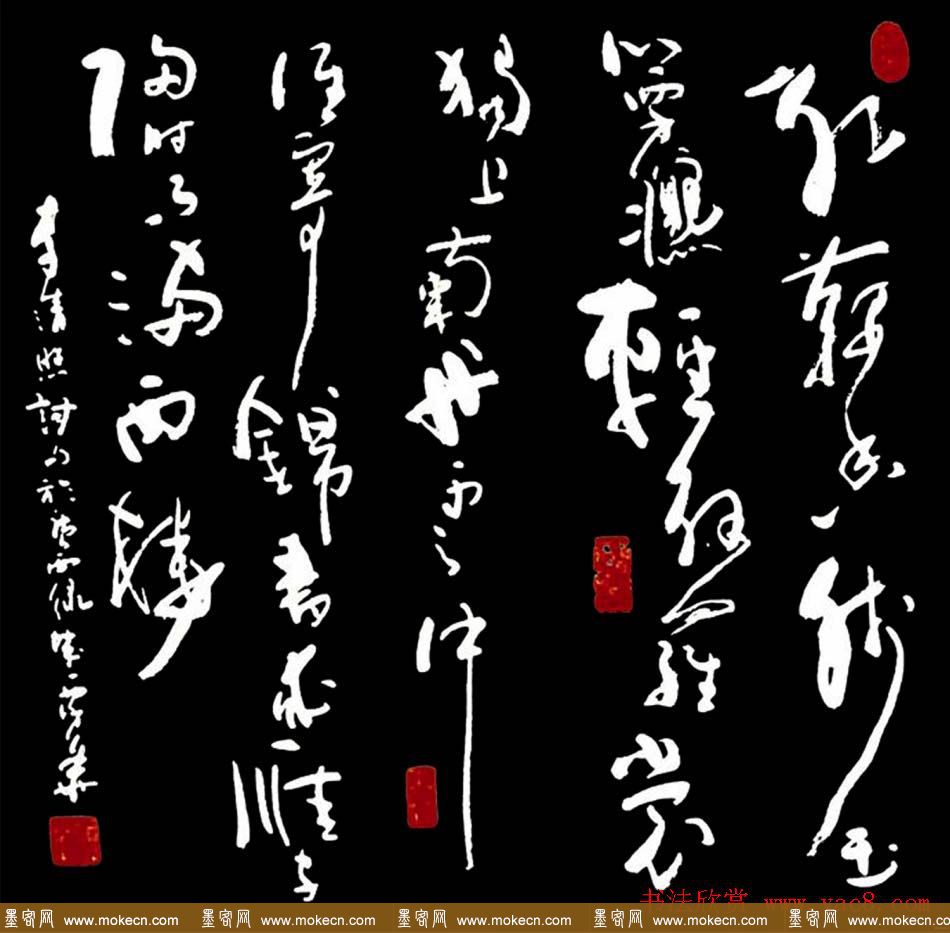 紅藕香殘玉
簟秋輕解羅裳
獨上蘭舟雲中
誰寄錦書來雁字
回時月滿西樓
李清照詞
书法欣赏 www.yac8.com
墨客网 www.mokecn.com 墨客网 www.mokecn.com 墨客网 www.mokecn.com 墨客网 www.mokecn.com 墨客网 www.mokecn.com